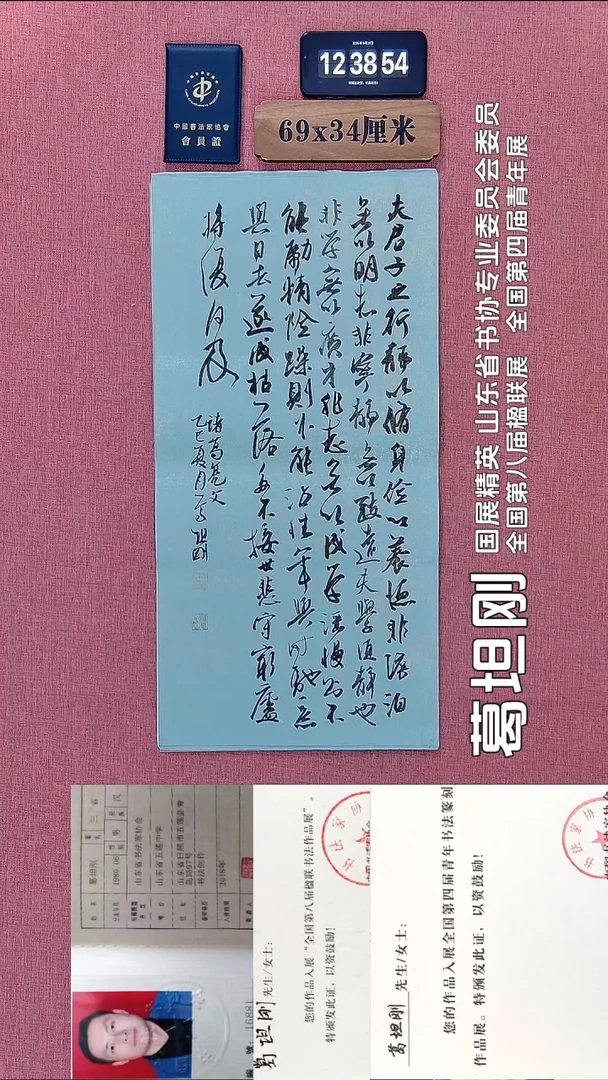 中國書法家協會
會員證
12 38 54
69x34厘米
夫君子之行静以脩身俭以養德非澹泊
無以明志非寧静無以致遠夫學須静也
非学無以廣才非志無以成学淫慢则不
能励精险躁则不能治性年與时馳意
與日去遂成枯落多不接世悲守窮廬
将復何及
诸葛亮文
乙巳夏月葛坦刚
葛坦刚
国展精英 山东省书协专业委员会委员
全国第八届楹联展 全国第四届青年展
姓名 葛坦刚
山东省书法家协会
山东省五莲中学
书法创作
2018年
16881
葛坦刚 先生/女士：
您的作品入展“全国第八届楹联书法作品展”。
特颁发此证，以资鼓励！
葛坦刚 先生/女士：
您的作品入展全国第四届青年书法篆刻
作品展。特颁发此证，以资鼓励！